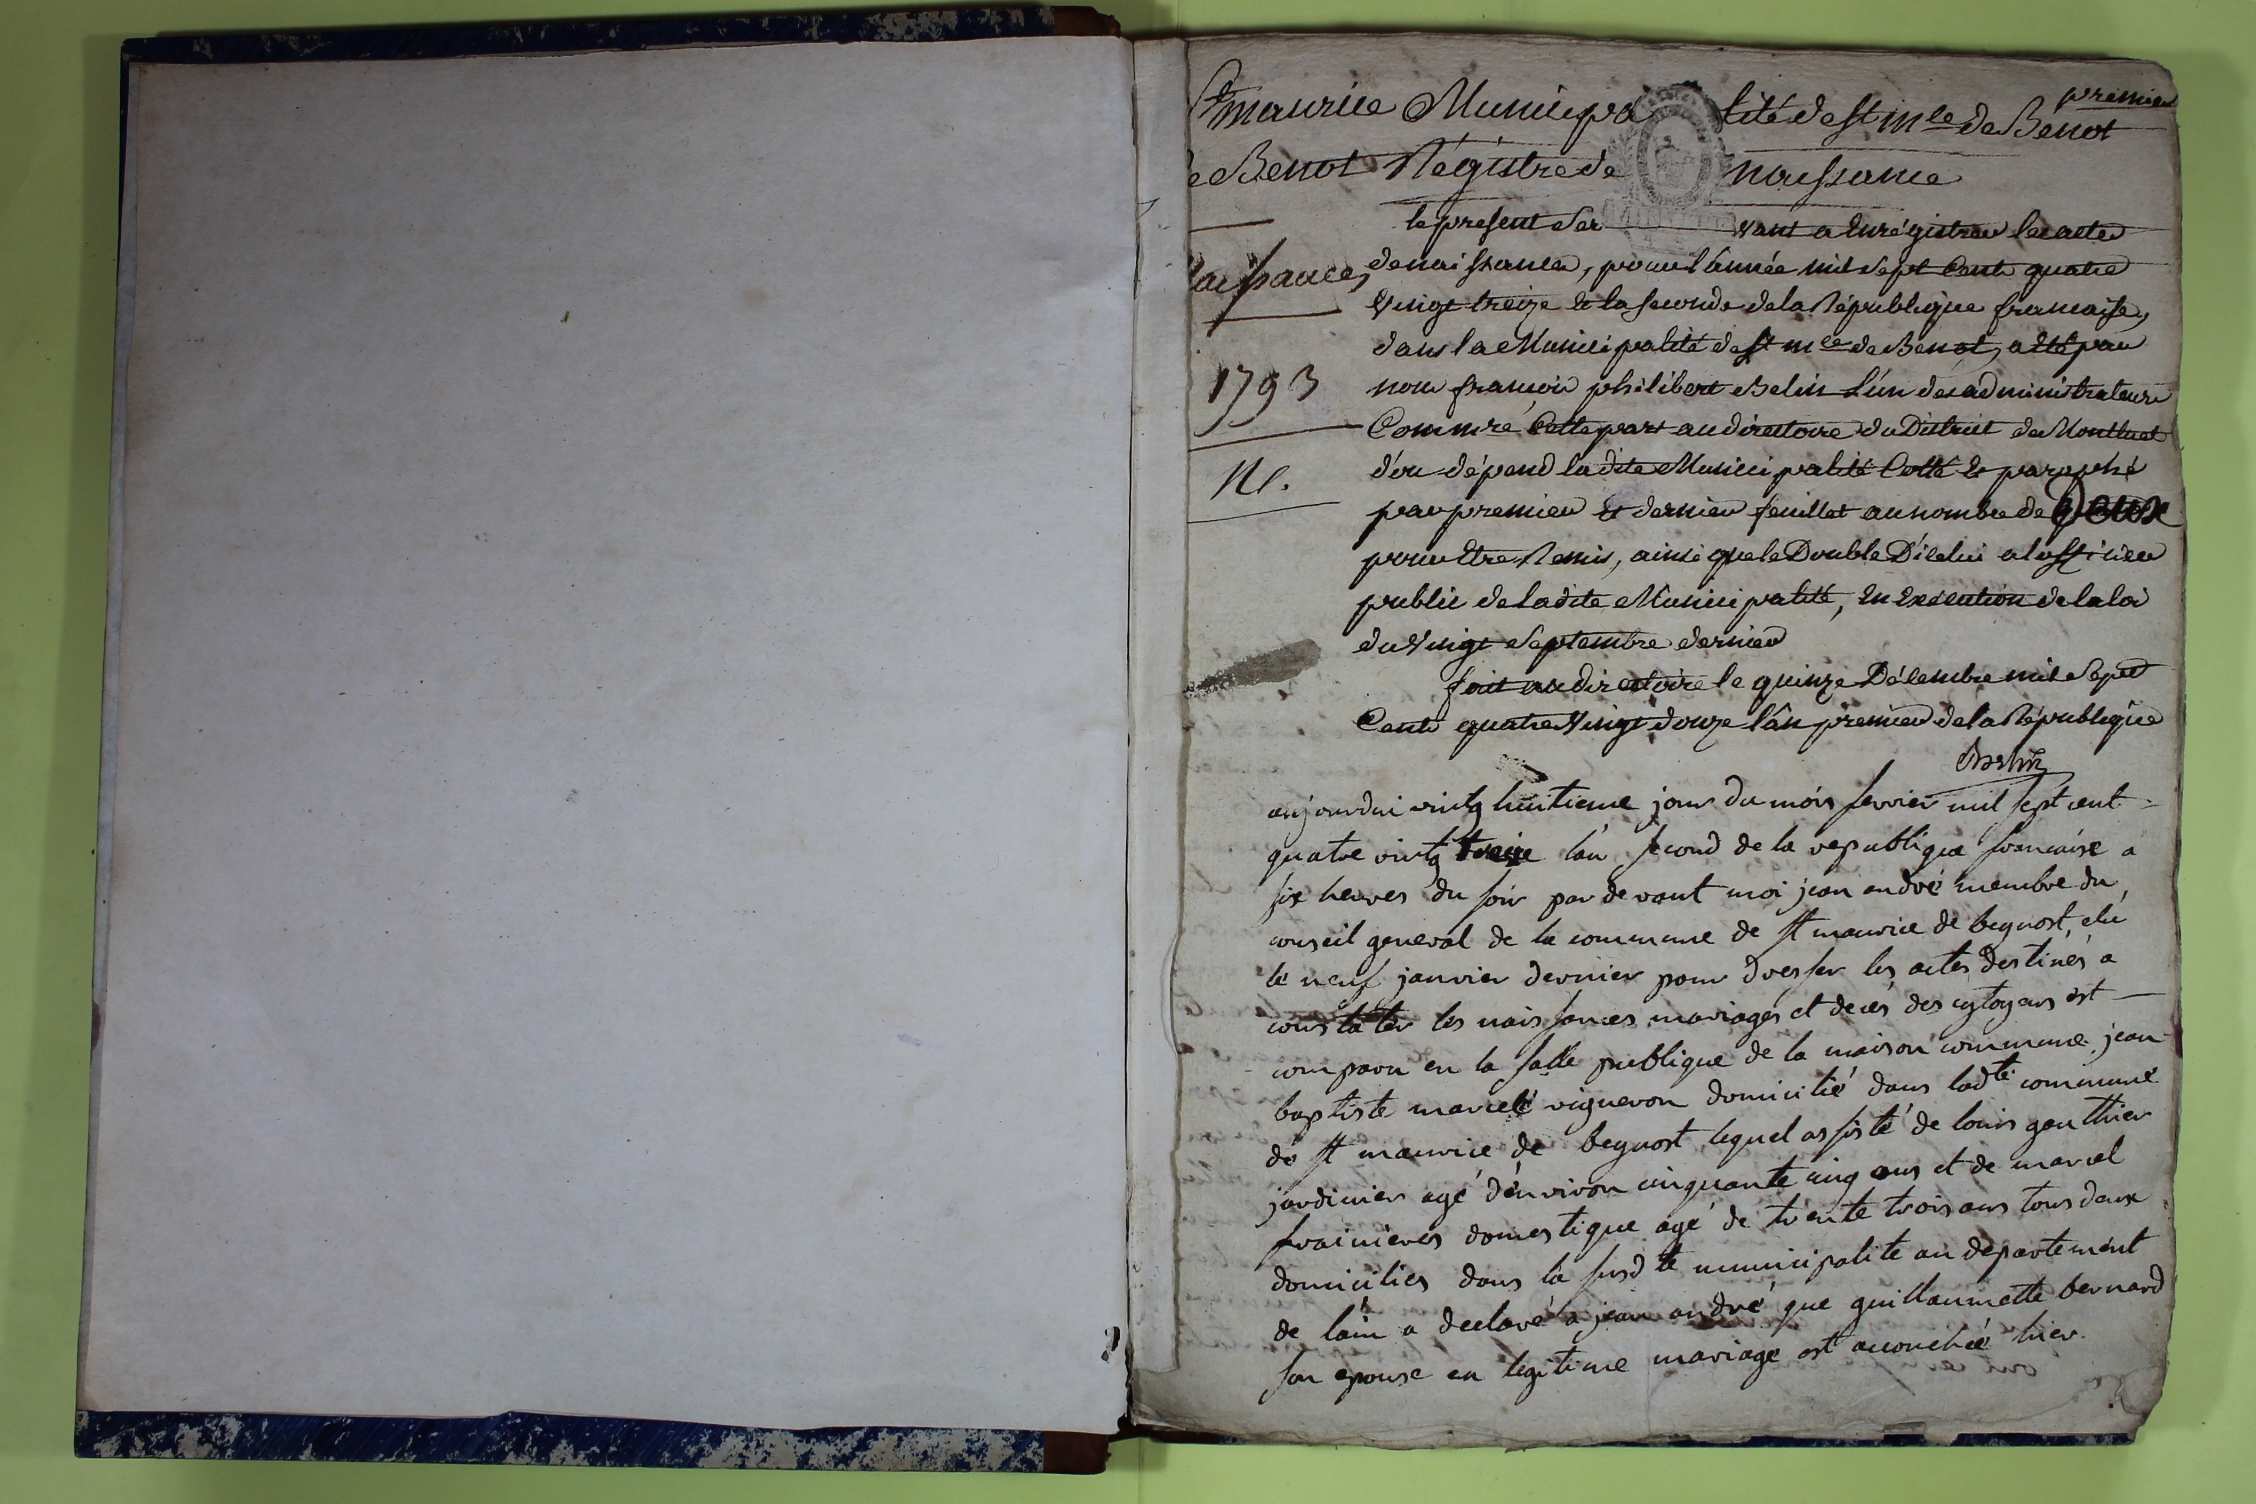 premier
St maurice Municipalité de st mce de Bénot
de Benot Régistre de naissance
le présent servant a Enrégistrer les actes
Naissances
de naissances, pour l'année mil sept Cents quatre
Vingt treize & la seconde de la République francaise,
dans la Municipalité de st mce de Benot, a été par
1793
nous francois philibert Belin l'un des administrateurs
Commre Cette part au directoire du District de Montluel
d'ou dépend la dite Municipalité Cotté & paraphé
par premier & dernier feuillet au nombre de Deux
pour Etre Remis, ainsi que le Double D'icelui a lofficier
public de la dite Municipalité, En Exécution de la loi
du Vingt Septembre dernier
fait au directoire le quinze Décembre mil Sept
Cents quatre Vingt douze l'an premier de la République
Belin
aujourdui vintg huitieme jour du mois fevrier mil sept cent
quatre vintg treize l'an second de la republique francaise a
six heures du soir par devant moi jean andré membre du
conseil general de la commune de st maurice de beynost, élu
le neuf janvier dernier pour dresser les actes destinés a
constater les naissances mariages et decés des cytoyens est
comparu en la salle publique de la maison commune jean
baptiste marcel vigneron domicilié dans ladte commune
de st maurice de beynost lequel assisté de louis gauthier
jardinier agé d'environ cinquante cinq ans et de marcel
domestique agé de trente trois ans tous deux
domiciliés dans la susdte municipalite au departement
de l'ain a declaré a jean andré que guillaumette bernard
son epouse en legitime mariage est accouchée hier